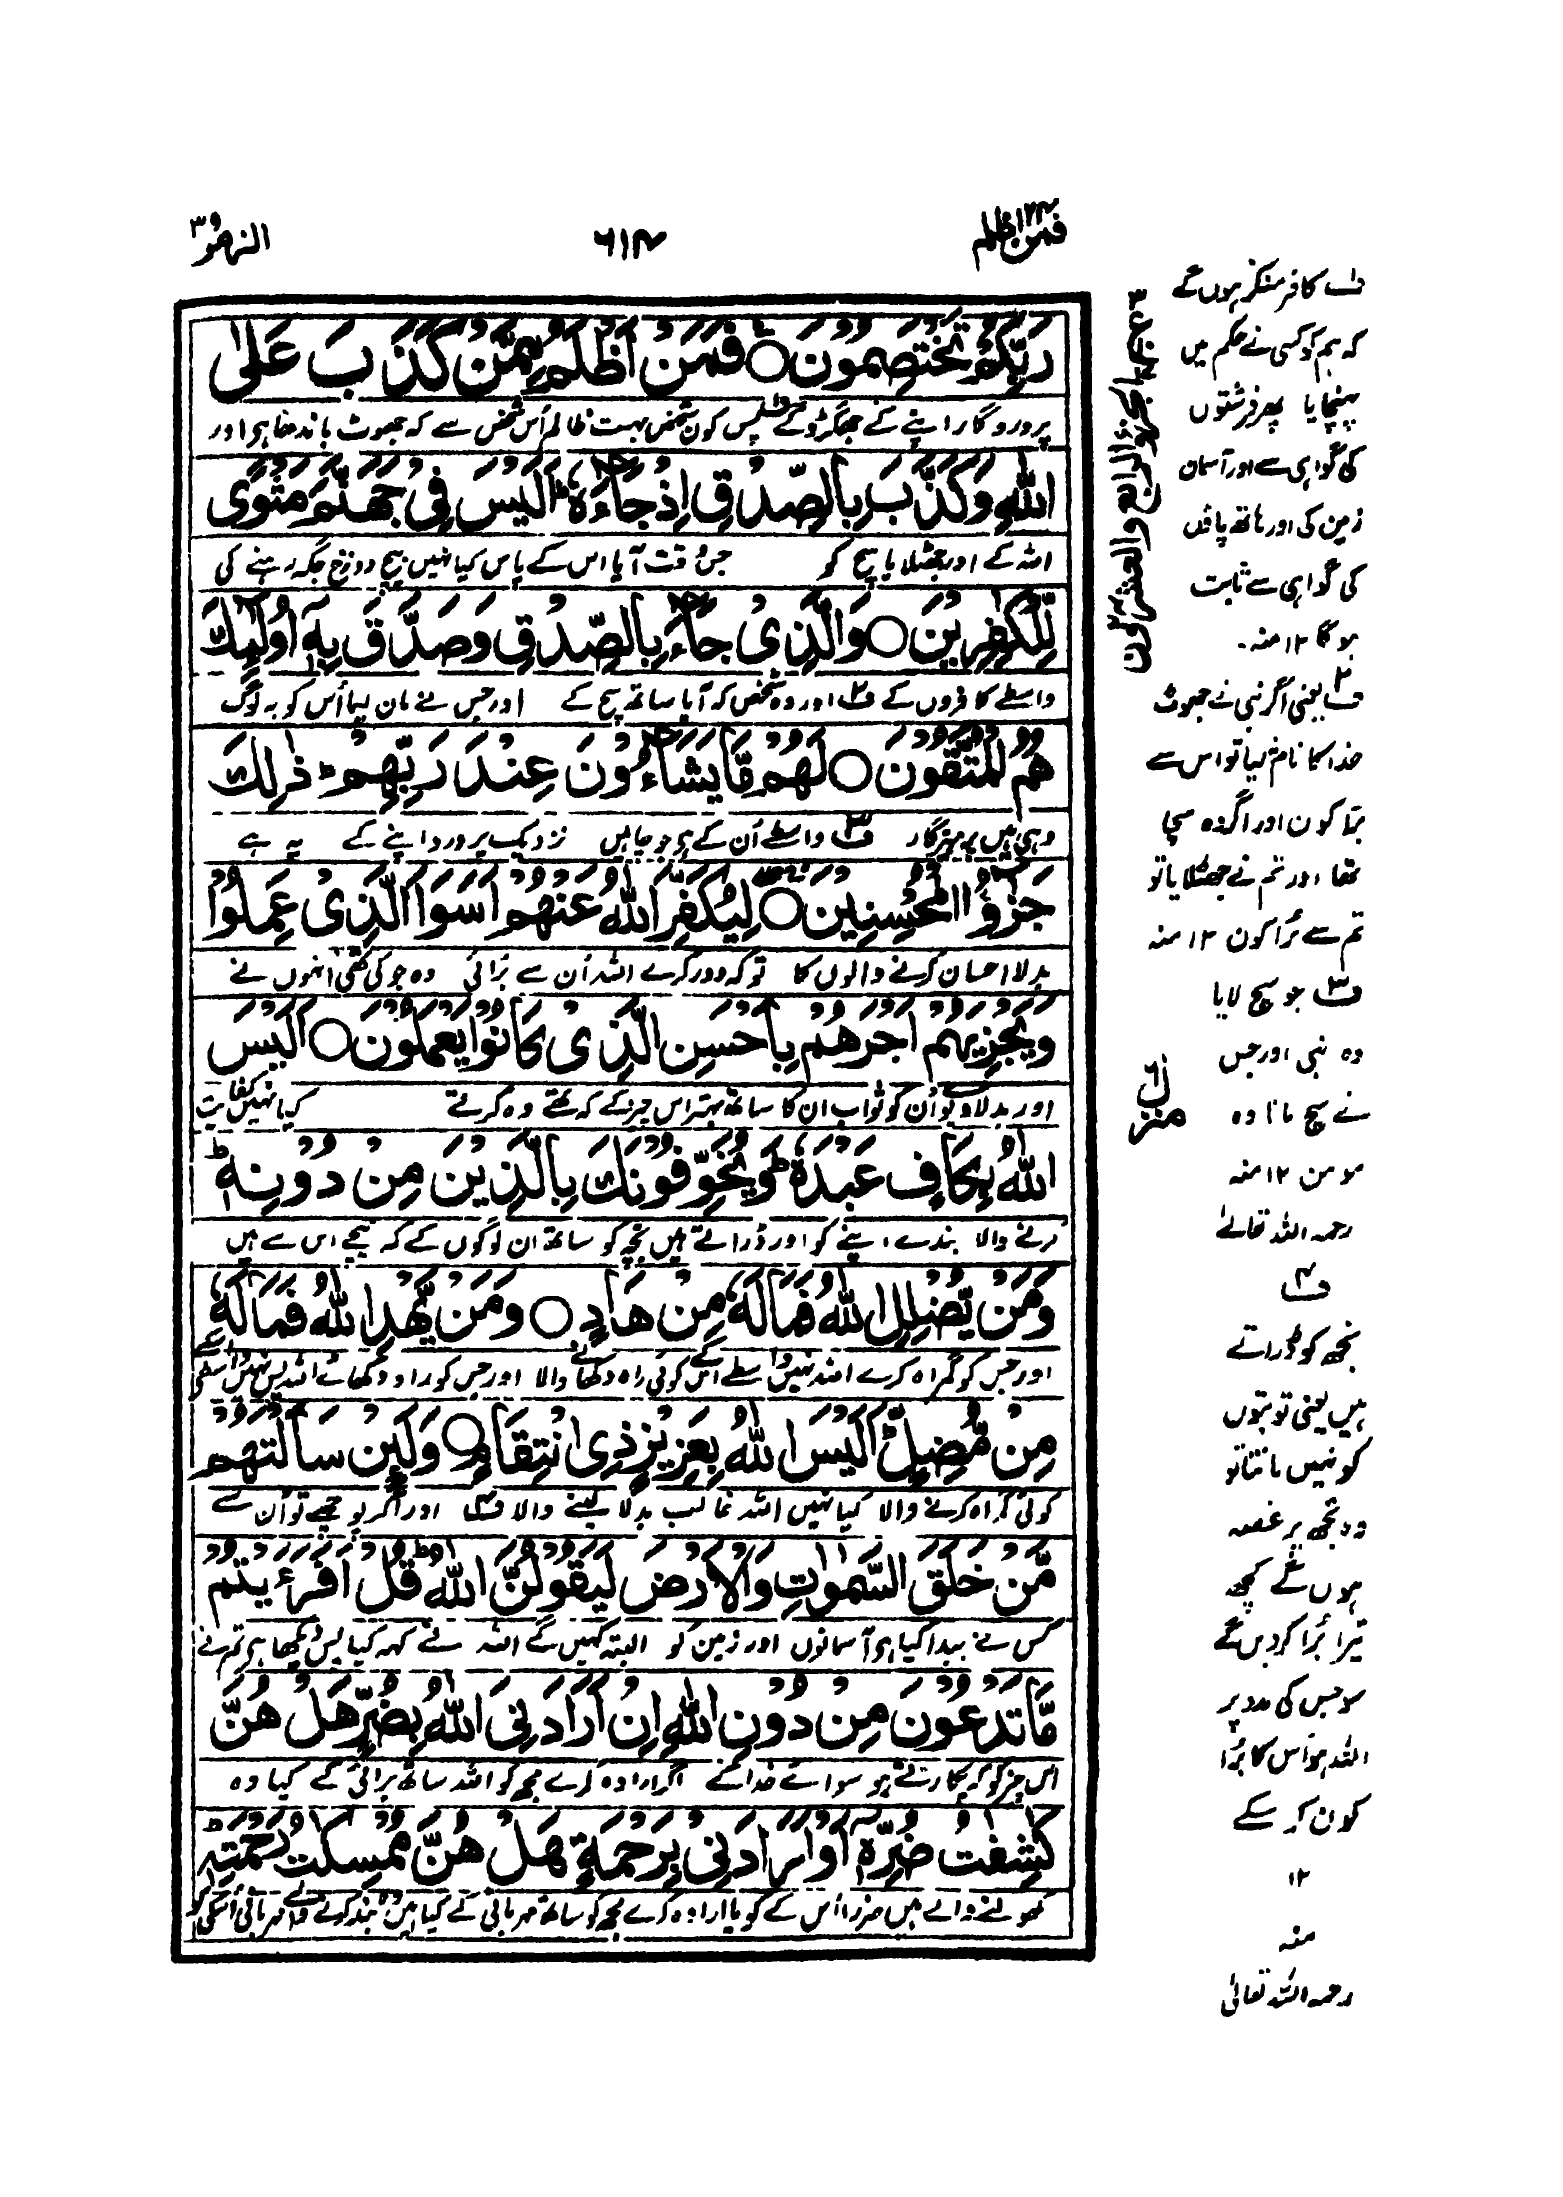 فمن اظلم ۲۴
۶۱۴
الزمر ۳۹
رَبِّكُمْ تَخْتَصِمُونَ ○ فَمَنْ أَظْلَمُ مِمَّنْ كَذَبَ عَلَى
پروردگار اپنے کے جھگڑو گے ف۱ پس کون شخص بہت ظالم اُس شخص سے کہ جھوٹ باندھا ہو اور
اللّٰهِ وَكَذَّبَ بِالصِّدْقِ اِذْ جَآءَهٗ ؕ اَلَيْسَ فِيْ جَهَنَّمَ مَثْوًى
اللہ کے اور جھٹلایا سچ کو جس وقت آیا اس کے پاس کیا نہیں بیچ دوزخ جگہ رہنے کی
لِّلْكٰفِرِيْنَ ○ وَالَّذِيْ جَآءَ بِالصِّدْقِ وَصَدَّقَ بِهٖٓ اُولٰٓئِكَ
واسطے کافروں کے ف۲ اور وہ شخص کہ آیا ساتھ سچ کے اور جس نے مان لیا اُس کو یہ لوگ
هُمُ الْمُتَّقُوْنَ ○ لَهُمْ مَّا يَشَآءُوْنَ عِنْدَ رَبِّهِمْ ؕ ذٰلِكَ
وہی ہیں پرہیزگار ف۳ واسطے اُن کے ہو جو چاہیں نزدیک پرورد اپنے کے یہ ہے
جَزٰٓؤُا الْمُحْسِنِيْنَ ○ لِيُكَفِّرَ اللّٰهُ عَنْهُمْ اَسْوَاَ الَّذِيْ عَمِلُوْا
بدلا احسان کرنے والوں کا تو کہ دور کرے اللہ اُن سے بُرائی وہ جو کی تھی انہوں نے
وَيَجْزِيَهُمْ اَجْرَهُمْ بِاَحْسَنِ الَّذِيْ كَانُوْا يَعْمَلُوْنَ ○ اَلَيْسَ
اور بدلا دیوے اُن کو ثواب ان کا ساتھ بہتر اس چیز کے کہ تھے وہ کرتے کیا نہیں کفایت
اللّٰهُ بِكَافٍ عَبْدَهٗ ؕ وَيُخَوِّفُوْنَكَ بِالَّذِيْنَ مِنْ دُوْنِهٖ ؕ
کرنے والا بندے اپنے کو اور ڈراتے ہیں تجھ کو ساتھ ان لوگوں کے کہ نیچے اس سے ہیں
وَمَنْ يُّضْلِلِ اللّٰهُ فَمَا لَهٗ مِنْ هَادٍ ○ وَمَنْ يَّهْدِ اللّٰهُ فَمَا لَهٗ
اور جس کو گمراہ کرے اللہ نہیں واسطے اس کے کوئی راہ دکھانے والا اور جس کو راہ دکھائے اللہ پس نہیں واسطے
مِنْ مُّضِلٍّ ؕ اَلَيْسَ اللّٰهُ بِعَزِيْزٍ ذِي انْتِقَامٍ ○ وَلَئِنْ سَاَلْتَهُمْ
کوئی گمراہ کرنے والا کیا نہیں اللہ غالب بدلا لینے والا ف۴ اور اگر پوچھے تو اُن سے
مَّنْ خَلَقَ السَّمٰوٰتِ وَالْاَرْضَ لَيَقُوْلُنَّ اللّٰهُ ؕ قُلْ اَفَرَءَيْتُمْ
کس نے پیدا کیا ہو آسمانوں اور زمین کو البتہ کہیں گے اللہ نے کہہ کیا پس دیکھا ہو تم نے
مَّا تَدْعُوْنَ مِنْ دُوْنِ اللّٰهِ اِنْ اَرَادَنِيَ اللّٰهُ بِضُرٍّ هَلْ هُنَّ
اُس چیز کو کہ پکارتے ہو سوائے خدا کے اگر ارادہ کرے مجھ کو اللہ ساتھ برائی کے کیا وہ
كٰشِفٰتُ ضُرِّهٖٓ اَوْ اَرَادَنِيْ بِرَحْمَةٍ هَلْ هُنَّ مُمْسِكٰتُ رَحْمَتِهٖ
کھولنے والے ہیں ضرر اُس کے کو یا ارادہ کرے مجھ کو ساتھ مہربانی کے کیا ہیں وہ بند کرنے والے مہربانی اُسکی کو
الجزؤ الرابع والعشرون ۲۴
منزل ۶
ف۱ کافر منکر ہوں گے
کہ ہم کو کسی نے حکم نہیں
پہنچایا پھر فرشتوں
کی گواہی سے اور آسمان
زمین کی اور ہاتھ پاؤں
کی گواہی سے ثابت
ہوگا ۱۲ منہ۔
ف۲ یعنی اگر نبی نے جھوٹ
خدا کا نام لیا تو اس سے
برا کون اور اگر وہ سچا
تھا اور تم نے جھٹلایا تو
تم سے بُرا کون ۱۲ منہ
ف۳ جو سچ لایا
وہ نبی اور جس
نے سچ مانا وہ
مومن ۱۲ منہ
رحمہ اللہ تعالےٰ
ف۴
تجھ کو ڈراتے
ہیں یعنی تو بتوں
کو نہیں مانتا تو
وہ تجھ پر غصہ
ہوں گے کچھ
تیرا بُرا کردیں گے
سو جس کی مدد پر
اللہ ہو اس کا بُرا
کون کر سکے
۱۲
منہ
رحمہ اللہ تعالیٰ